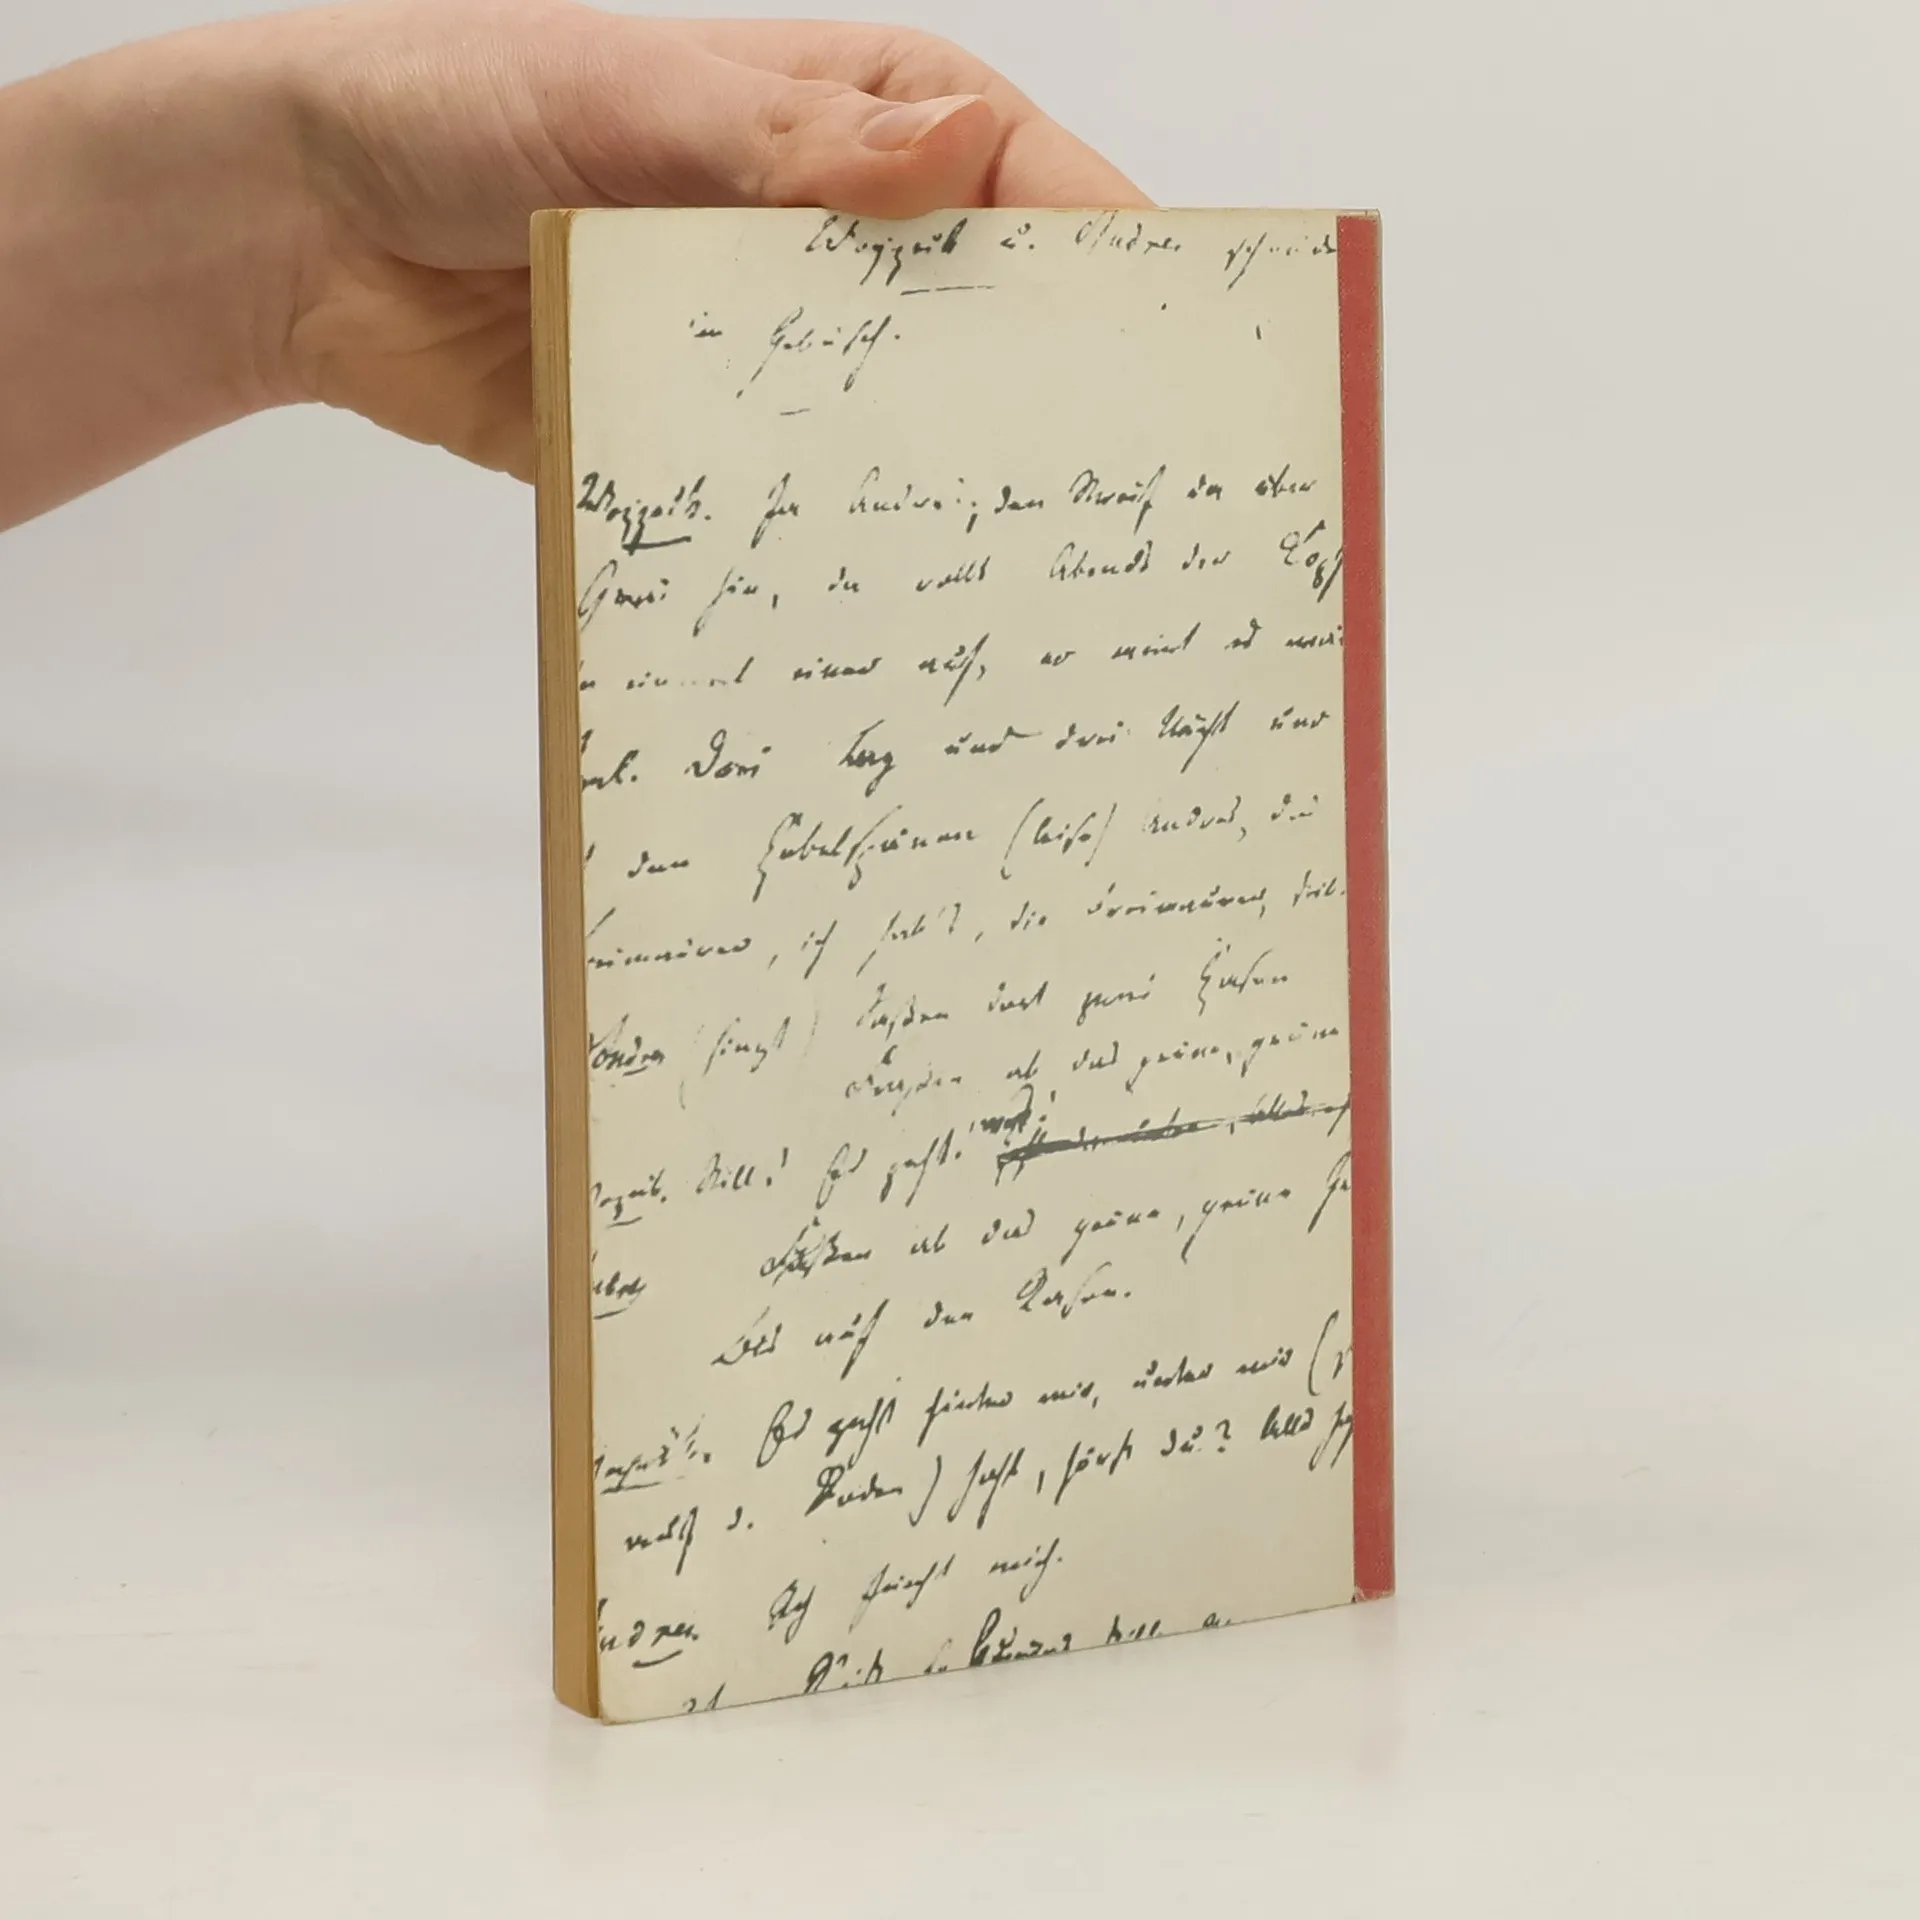 Woyzeck u. Andres schneide
im Gebüsch.
Woyzeck. Ja Andres; den Streif da über
Gras hin, da rollt Abends der Kopf
einmal einer auf, er meint es wär
Drei Tag und drei Nächt und
den Hobelspänen (leise) Andres, die
Freimaurer, ich hab's, die Freimaurer, still.
Andres (singt) Saßen dort zwei Hasen
Fraßen ab das grüne, grüne
Woyzeck. Still! Es geht! was!
Andres Fraßen ab das grüne, grüne Gr
Bis auf den Rasen.
Woyzeck. Es geht hinter mir, unter mir (
auf d. Boden) hohl, hörst du? Alles ho
Andres. Ich fürcht mich.